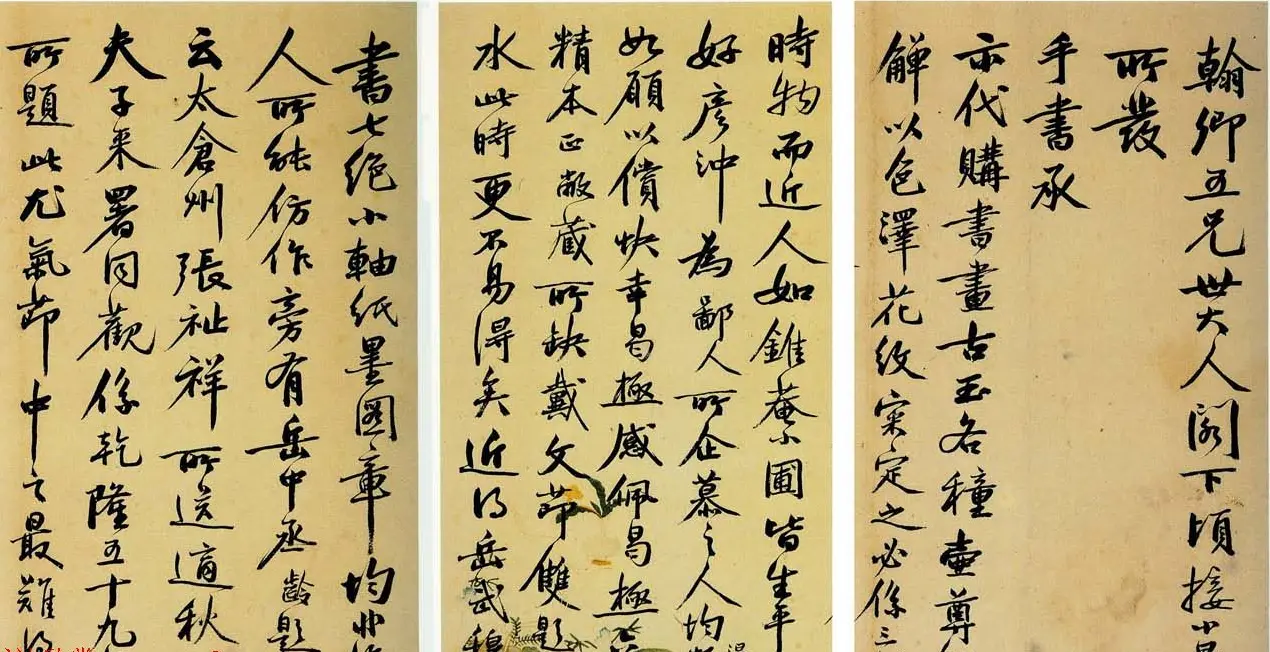 翰卿五兄世大人阁下頃接小
所發
手書承
示代購書畫古玉各種壷尊
觶以色澤花紋宷定之必係三
時物而近人如錐菴小圃皆生平
好彦沖為鄙人所企慕之人均
如願以償快幸曷極感佩曷極
精本正敝蔵所缺戴文节雙題
水此時更不易得矣近得岳武穆
書七絶小軸紙墨圖章均非
人所能仿作旁有岳中丞齡題
云太倉州張祉祥所送適秋
夫子来署同觀係乾隆五十九
所題此尤氣节中之最難得